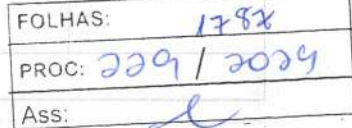 FOLHAS: 178
PROC: 229 / 2024
Ass: